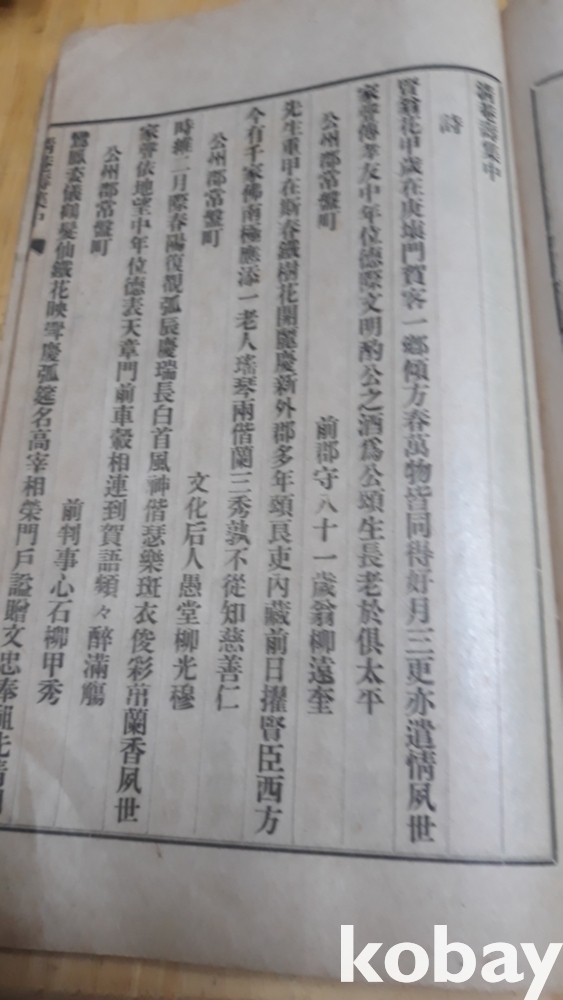 壽集中
詩
賢翁花甲歲在庚壤門賀客一鄉傾方春萬物皆同得好月三更亦遣情夙世
家聲傳孝友中年位德際文明酌公之酒爲公頌生長老於俱太平
公州郡常盤町 前郡守八十一歲翁柳遠奎
先生重甲在斯春鐵樹花開麗慶新外郡多年頭艮吏內藏前日擢賢臣西方
今有千家佛南極應添一老人瑤琴兩偕蘭三秀孰不從知慈善仁
公州郡常盤町 文化后人愚堂柳光穆
時維二月際春陽復覩弧辰慶瑞長白首風神偕瑟樂斑衣俊彩茁蘭香夙世
家聲依地望中年位德表天章門前車轂相連到賀語頻々醉滿觴
公州郡常盤町 前判事心石柳甲秀
鸞鳳 儀鶴髮仙鐵花映 慶弧筵名高宰相榮門戶謚贈文忠奉
壽集中
kobay